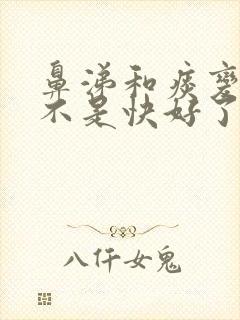 鼻涕和痰变
不是快好了
八仟女鬼